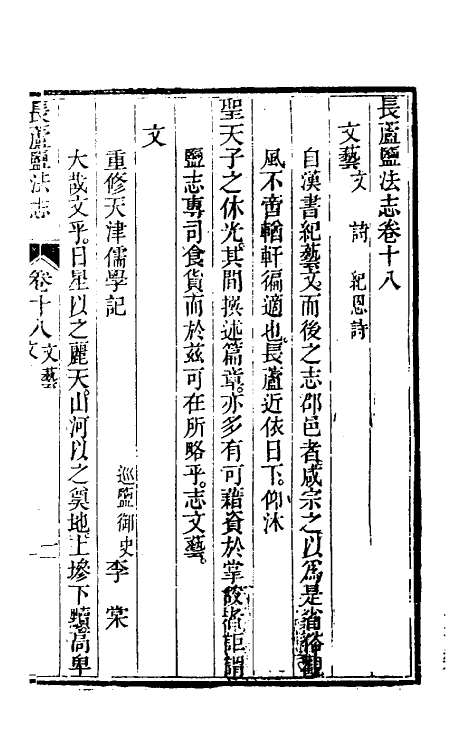 長蘆鹽法志卷十八
文藝文 詩 紀恩詩
自漢書紀藝文而後之志郡邑者咸宗之以為是省俗觀
風不啻輶軒徧適也長蘆近依日下仰沐
聖天子之休光其間撰述篇章亦多有可藉資於掌故者詎謂
鹽志專司食貨而於茲可在所略乎志文藝
文
重修天津儒學記 巡鹽御史李棠
大哉文乎日星以之麗天山河以之奠地上墋下黷高卑
長蘆鹽法志 卷十八 文藝 文 一